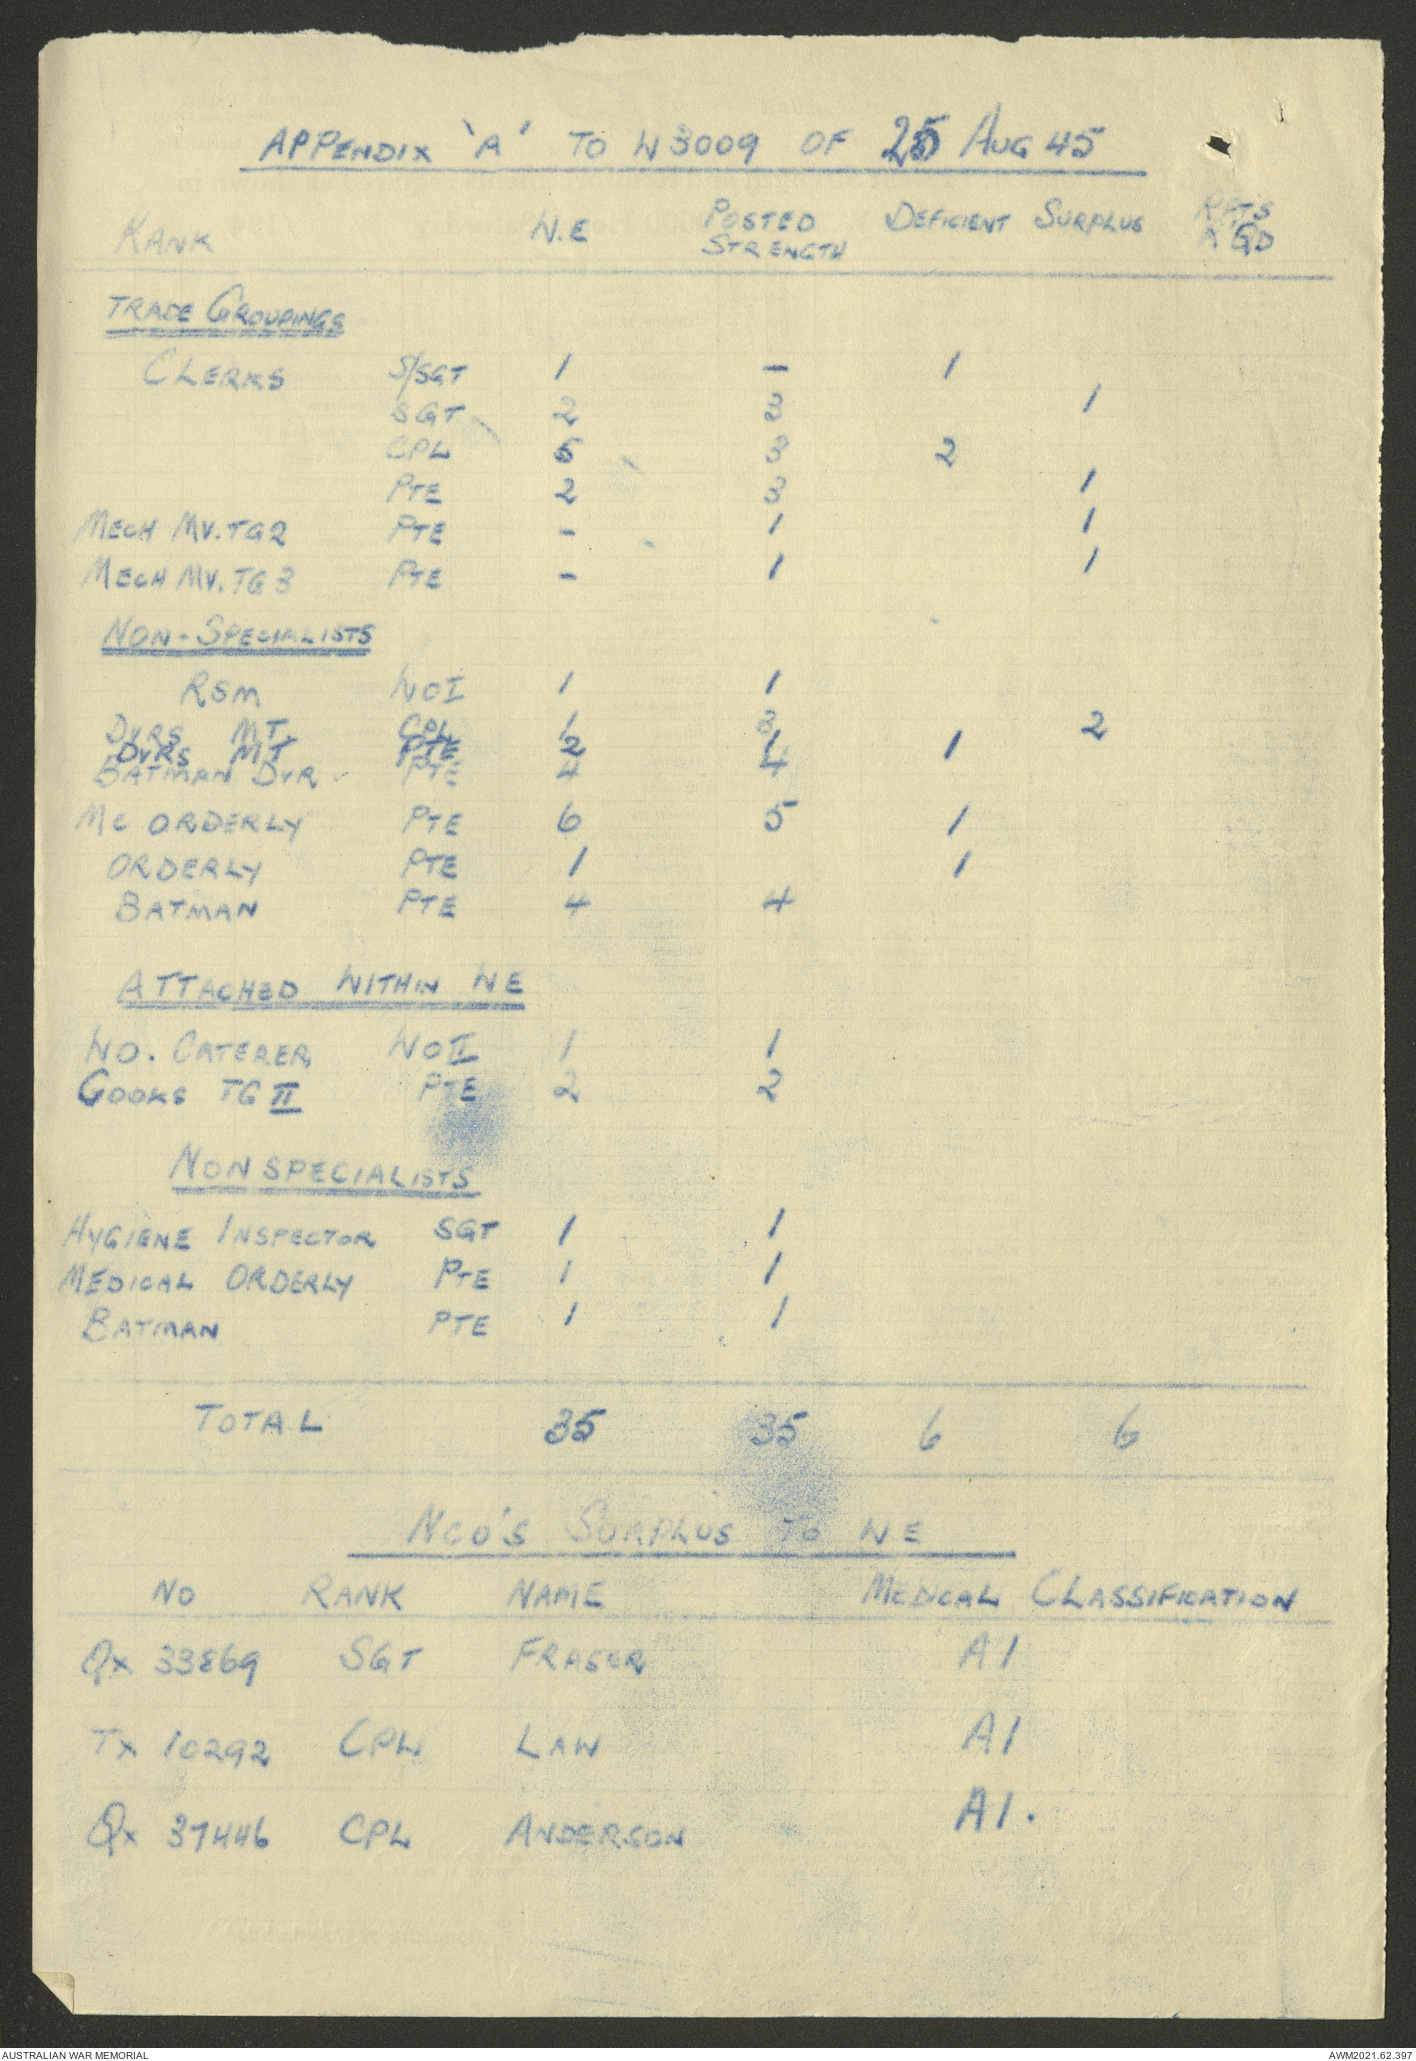 APPENDIX 'A' TO W3009 OF 25 AUG 45
RANK W.E POSTED STRENGTH DEFICIENT SURPLUS RFTS R'QD
TRADE GROUPINGS
CLERKS S/SGT 1 - 1
SGT 2 3 1
CPL 5 3 2
PTE 2 3 1
MECH MV. TG2 PTE - 1 1
MECH MV. TG3 PTE - 1 1
NON-SPECIALISTS
RSM WOI 1 1
DVRS MT. CPL 1 3 2
DVRS MT PTE 2 1 1
BATMAN DVR PTE 4 4
MC ORDERLY PTE 6 5 1
ORDERLY PTE 1 1
BATMAN PTE 4 4
ATTACHED WITHIN WE
WO. CATERER WOII 1 1
COOKS TG II PTE 2 2
NON SPECIALISTS
HYGIENE INSPECTOR SGT 1 1
MEDICAL ORDERLY PTE 1 1
BATMAN PTE 1 1
TOTAL 35 35 6 6
NCO'S SURPLUS TO WE
NO RANK NAME MEDICAL CLASSIFICATION
QX 33869 SGT FRASER A1
TX 10292 CPL LAW A1
QX 37446 CPL ANDERSON A1.
AUSTRALIAN WAR MEMORIAL AWM2021.62.397